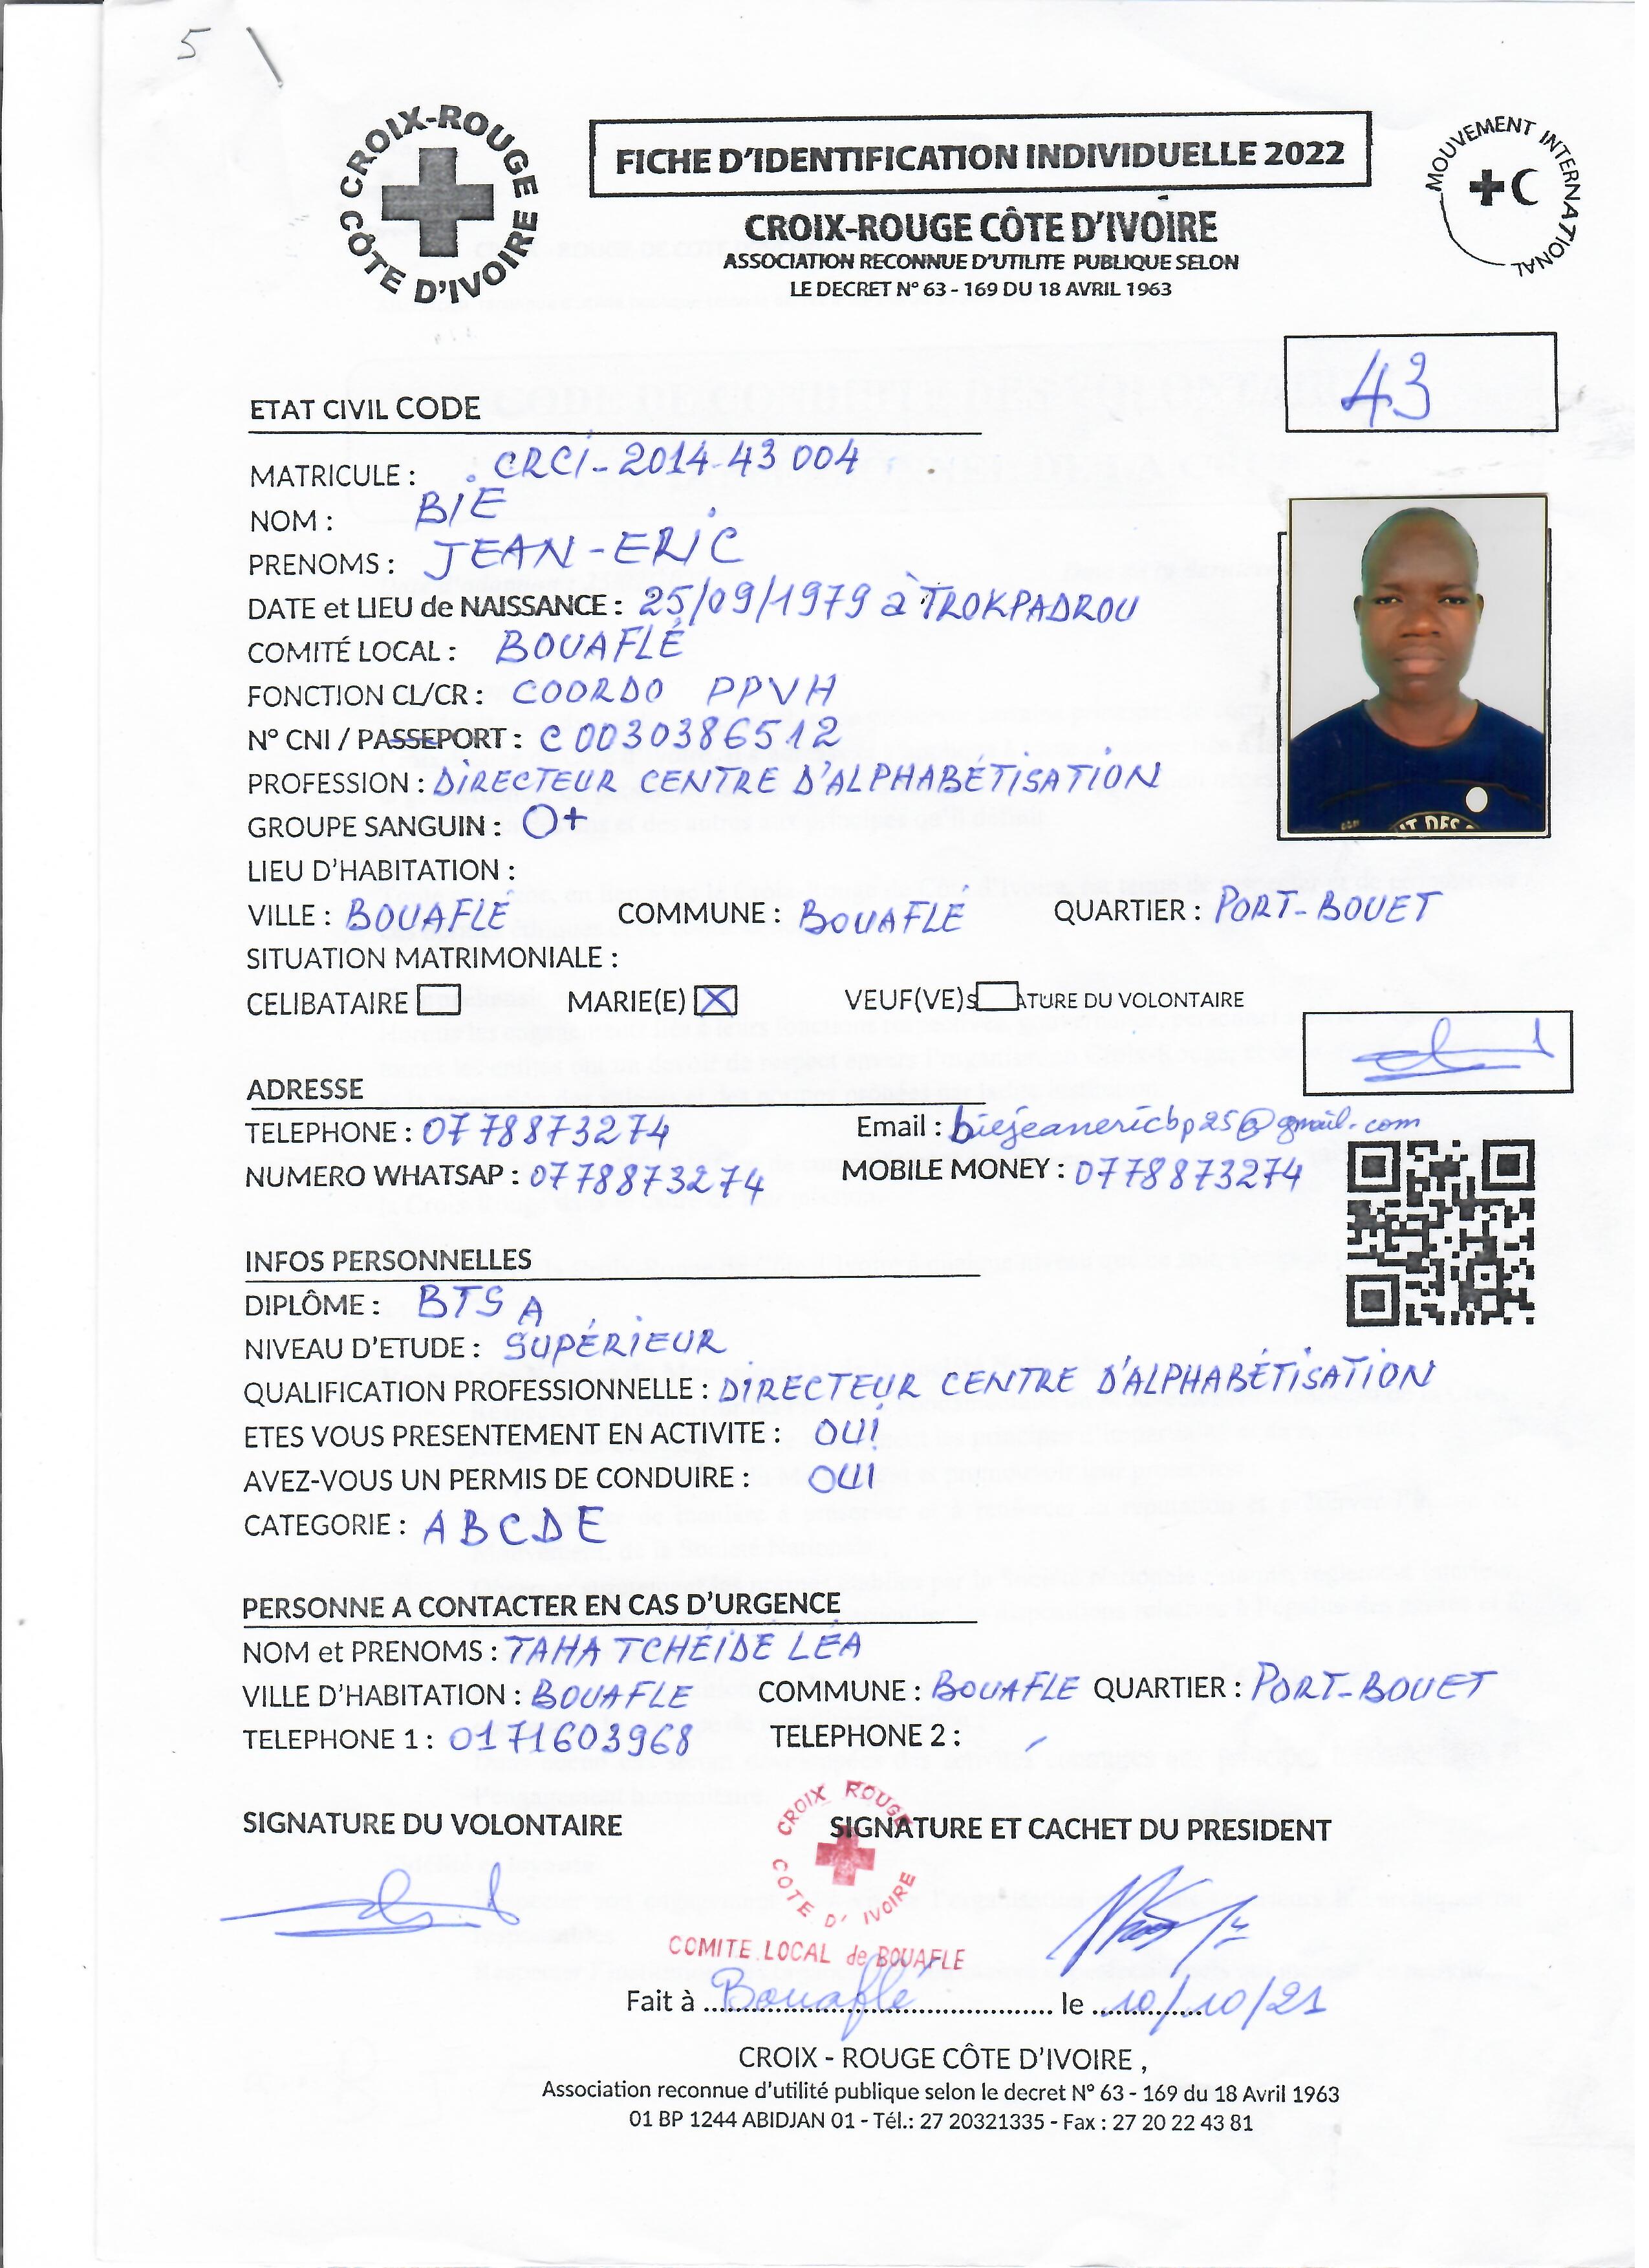 5
CROIX-ROUGE CÔTE D'IVOIRE
FICHE D'IDENTIFICATION INDIVIDUELLE 2022
MOUVEMENT INTERNATIONAL
CROIX-ROUGE CÔTE D'IVOIRE
ASSOCIATION RECONNUE D'UTILITE PUBLIQUE SELON
LE DECRET N° 63 - 169 DU 18 AVRIL 1963
43
ETAT CIVIL CODE
MATRICULE : CRCI-2014-43 004
NOM : BIE
PRENOMS : JEAN-ERIC
DATE et LIEU de NAISSANCE : 25/09/1979 à TROKPADROU
COMITÉ LOCAL : BOUAFLÉ
FONCTION CL/CR : COORDO PPVH
N° CNI / PASSEPORT : C 0030386512
PROFESSION : DIRECTEUR CENTRE D'ALPHABÉTISATION
GROUPE SANGUIN : O+
LIEU D'HABITATION :
VILLE : BOUAFLÉ COMMUNE : BOUAFLÉ QUARTIER : PORT-BOUET
SITUATION MATRIMONIALE :
CELIBATAIRE MARIE(E) X VEUF(VE) S ATURE DU VOLONTAIRE
ADRESSE
TELEPHONE : 0778873274 Email : biejeanericbp25@gmail.com
NUMERO WHATSAP : 0778873274 MOBILE MONEY : 0778873274
INFOS PERSONNELLES
DIPLÔME : BTS A
NIVEAU D'ETUDE : SUPÉRIEUR
QUALIFICATION PROFESSIONNELLE : DIRECTEUR CENTRE D'ALPHABÉTISATION
ETES VOUS PRESENTEMENT EN ACTIVITE : OUI
AVEZ-VOUS UN PERMIS DE CONDUIRE : OUI
CATEGORIE : A B C D E
PERSONNE A CONTACTER EN CAS D'URGENCE
NOM et PRENOMS : TAHA TCHÉIDE LÉA
VILLE D'HABITATION : BOUAFLE COMMUNE : BOUAFLE QUARTIER : PORT-BOUET
TELEPHONE 1 : 0171603968 TELEPHONE 2 :
SIGNATURE DU VOLONTAIRE SIGNATURE ET CACHET DU PRESIDENT
CROIX ROUGE COTE D'IVOIRE
COMITE LOCAL de BOUAFLE
Fait à Bouaflé le 10/10/21
CROIX - ROUGE CÔTE D'IVOIRE ,
Association reconnue d'utilité publique selon le decret N° 63 - 169 du 18 Avril 1963
01 BP 1244 ABIDJAN 01 - Tél.: 27 20321335 - Fax : 27 20 22 43 81